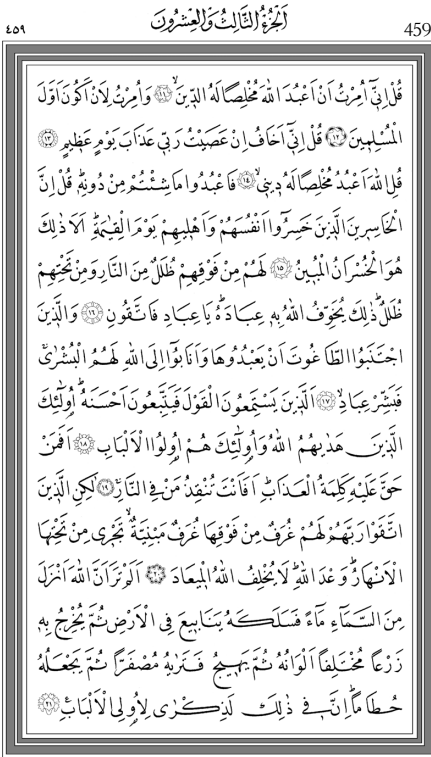 اَلْجُزْءُ الثَّالِثُ وَالْعِشْرُونَ
٤٥٩
459
قُلْ اِنّ۪ٓي اُمِرْتُ اَنْ اَعْبُدَ اللّٰهَ مُخْلِصًا لَهُ الدّ۪ينَۙ ﴿١١﴾ وَاُمِرْتُ لِاَنْ اَكُونَ اَوَّلَ
الْمُسْلِم۪ينَ ﴿١٢﴾ قُلْ اِنّ۪ٓي اَخَافُ اِنْ عَصَيْتُ رَبّ۪ي عَذَابَ يَوْمٍ عَظ۪يمٍ ﴿١٣﴾
قُلِ اللّٰهَ اَعْبُدُ مُخْلِصًا لَهُ د۪ين۪يۙ ﴿١٤﴾ فَاعْبُدُوا مَا شِئْتُمْ مِنْ دُونِه۪ۜ قُلْ اِنَّ
الْخَاسِر۪ينَ الَّذ۪ينَ خَسِرُٓوا اَنْفُسَهُمْ وَاَهْل۪يهِمْ يَوْمَ الْقِيٰمَةِۜ اَلَا ذٰلِكَ
هُوَ الْخُسْرَانُ الْمُب۪ينُ ﴿١٥﴾ لَهُمْ مِنْ فَوْقِهِمْ ظُلَلٌ مِنَ النَّارِ وَمِنْ تَحْتِهِمْ
ظُلَلٌۜ ذٰلِكَ يُخَوِّفُ اللّٰهُ بِه۪ عِبَادَهُۜ يَا عِبَادِ فَاتَّقُونِ ﴿١٦﴾ وَالَّذ۪ينَ
اجْتَنَبُوا الطَّاغُوتَ اَنْ يَعْبُدُوهَا وَاَنَابُٓوا اِلَى اللّٰهِ لَهُمُ الْبُشْرٰىۚ
فَبَشِّرْ عِبَادِۙ ﴿١٧﴾ اَلَّذ۪ينَ يَسْتَمِعُونَ الْقَوْلَ فَيَتَّبِعُونَ اَحْسَنَهُۜ اُو۬لٰٓئِكَ
الَّذ۪ينَ هَدٰيهُمُ اللّٰهُ وَاُو۬لٰٓئِكَ هُمْ اُو۬لُوا الْاَلْبَابِ ﴿١٨﴾ اَفَمَنْ
حَقَّ عَلَيْهِ كَلِمَةُ الْعَذَابِۜ اَفَاَنْتَ تُنْقِذُ مَنْ فِي النَّارِۚ ﴿١٩﴾ لٰكِنِ الَّذ۪ينَ
اتَّقَوْا رَبَّهُمْ لَهُمْ غُرَفٌ مِنْ فَوْقِهَا غُرَفٌ مَبْنِيَّةٌۙ تَجْر۪ي مِنْ تَحْتِهَا
الْاَنْهَارُۜ وَعْدَ اللّٰهِۜ لَا يُخْلِفُ اللّٰهُ الْم۪يعَادَ ﴿٢٠﴾ اَلَمْ تَرَ اَنَّ اللّٰهَ اَنْزَلَ
مِنَ السَّمَٓاءِ مَٓاءً فَسَلَكَهُ يَنَاب۪يعَ فِي الْاَرْضِ ثُمَّ يُخْرِجُ بِه۪
زَرْعًا مُخْتَلِفًا اَلْوَانُهُ ثُمَّ يَه۪يجُ فَتَرٰيهُ مُصْفَرًّا ثُمَّ يَجْعَلُهُ
حُطَامًاۜ اِنَّ ف۪ي ذٰلِكَ لَذِكْرٰى لِاُو۬لِي الْاَلْبَابِ۟ ﴿٢١﴾